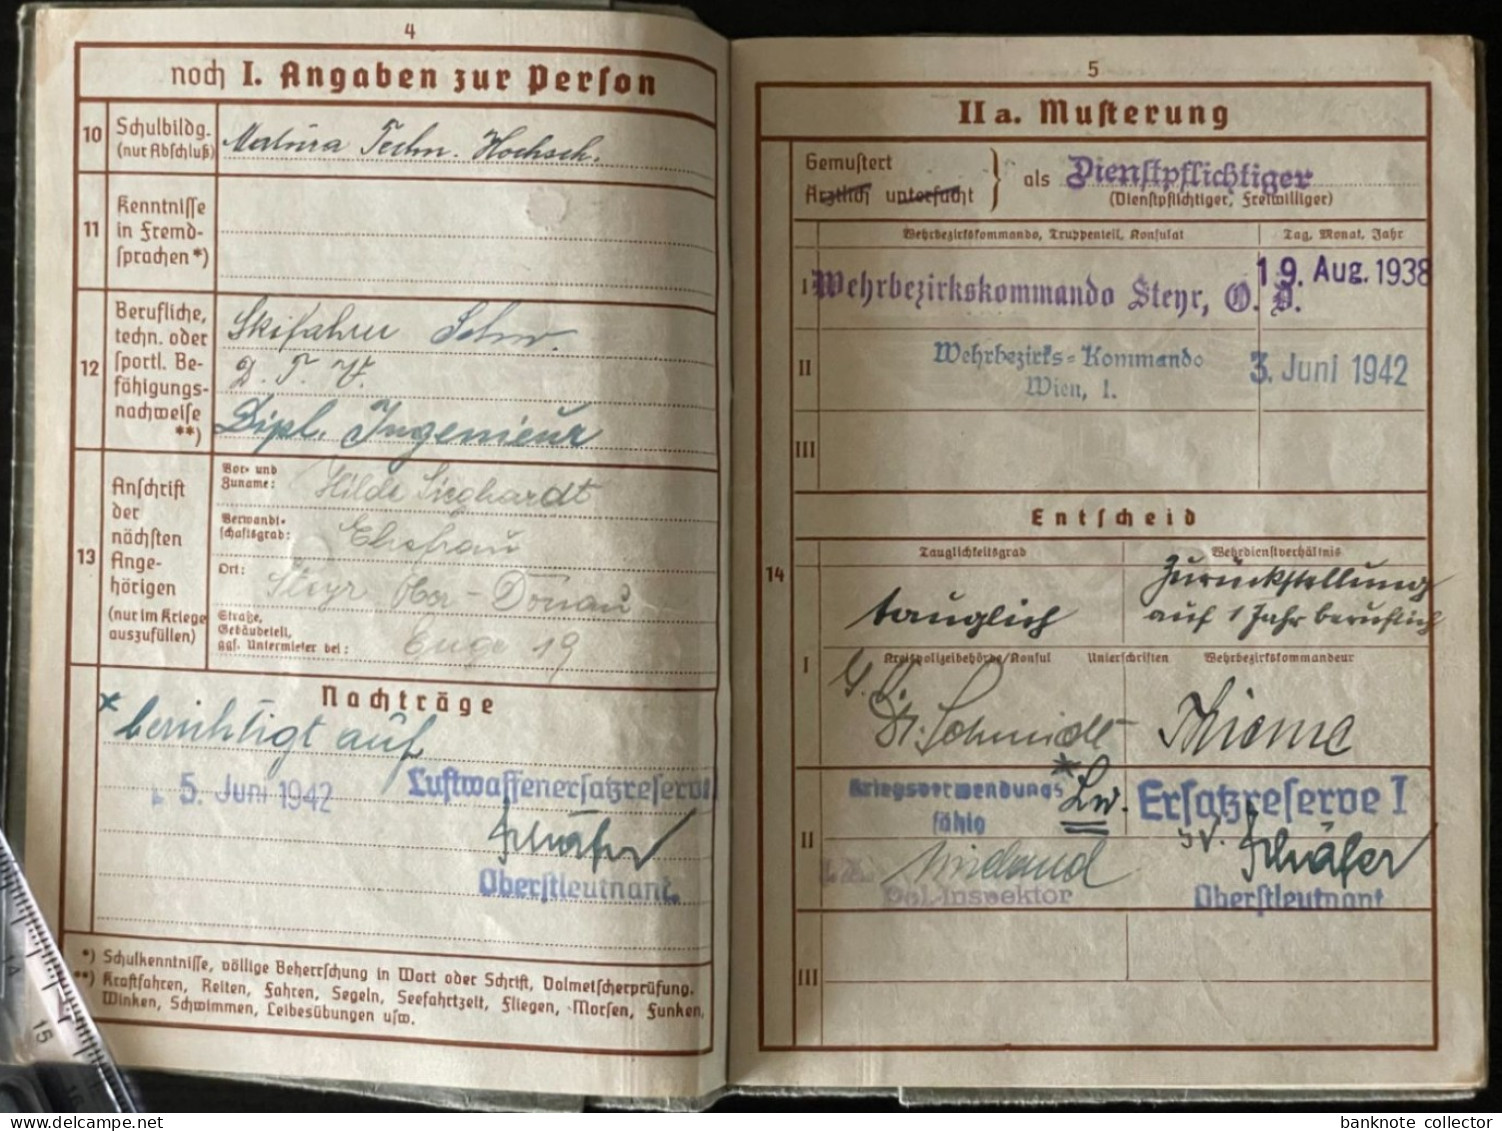 4
noch I. Angaben zur Person
10
Schulbildg.
(nur Abschluß)
Matura Techn. Hochsch.
11
Kenntnisse
in Fremd-
sprachen *)
12
Berufliche,
techn. oder
sportl. Be-
fähigungs-
nachweise
**)
Skifahrer Schw.
D. T. V.
Dipl. Ingenieur
13
Anschrift
der
nächsten
Ange-
hörigen
(nur im Kriege
auszufüllen)
Vor- und
Zuname:
Hilde Sieghardt
Verwandt-
schaftsgrad:
Ehefrau
Ort:
Steyr Ober-Donau
Straße,
Gebäudeteil,
ggf. Untermieter bei:
Enge 19
Nachträge
* berichtigt auf
5. Juni 1942
Luftwaffenersatzreserve I
Schäfer
Oberstleutnant
*) Schulkenntnisse, völlige Beherrschung in Wort oder Schrift, Dolmetscherprüfung.
**) Kraftfahren, Reiten, Fahren, Segeln, Seefahrtzeit, Fliegen, Morsen, Funken,
Winken, Schwimmen, Leibesübungen usw.
5
IIa. Musterung
Gemustert
Ärztlich untersucht
als Dienstpflichtiger
(Dienstpflichtiger, Freiwilliger)
Wehrbezirkskommando, Truppenteil, Konsulat
Tag, Monat, Jahr
I
Wehrbezirkskommando Steyr, O. D.
19. Aug. 1938
II
Wehrbezirks-Kommando
Wien, I.
3. Juni 1942
III
Entscheid
14
Tauglichkeitsgrad
Wehrdienstverhältnis
tauglich
Zurückstellung
auf 1 Jahr beruflich
I
Kreispolizeibehörde/Konsul
Unterschriften
Wehrbezirkskommandeur
Dr. Schmidt
Thieme
II
Kriegsverwendungs
fähig
* Lw.
Ersatzreserve I
Pol.-Inspektor
I.V. Schäfer
Oberstleutnant
III
14
15
16
banknote collector